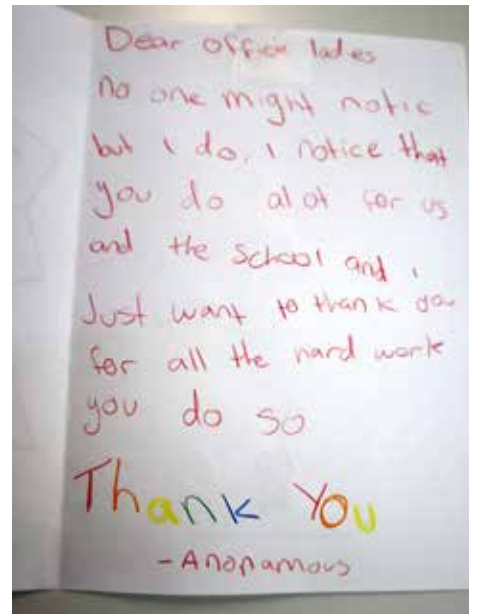 Dear office ladies
no one might notic
but i do, i notice that
you do alot for us
and the school and i
Just want to thank you
for all the hard work
you do so
Thank You
- Anonamous